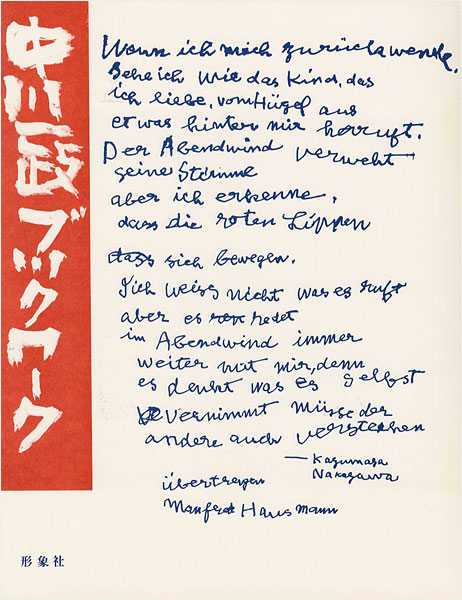 中川一政ブックワーク
Wenn ich mich zurückwende,
Sehe ich wie das Kind, das
ich liebe, vom Hügel aus
etwas hinter mir herruft.
Der Abendwind verweht
seine Stimme
aber ich erkenne,
dass die roten Lippen
dass sich bewegen.
Ich weiss nicht was es ruft
aber es redet
im Abendwind immer
weiter mit mir, denn
es denkt was es selbst
vernimmt müsse der
andere auch verstehen
— Kazumasa
Nakagawa
übertragen
Manfred Hausmann
形象社